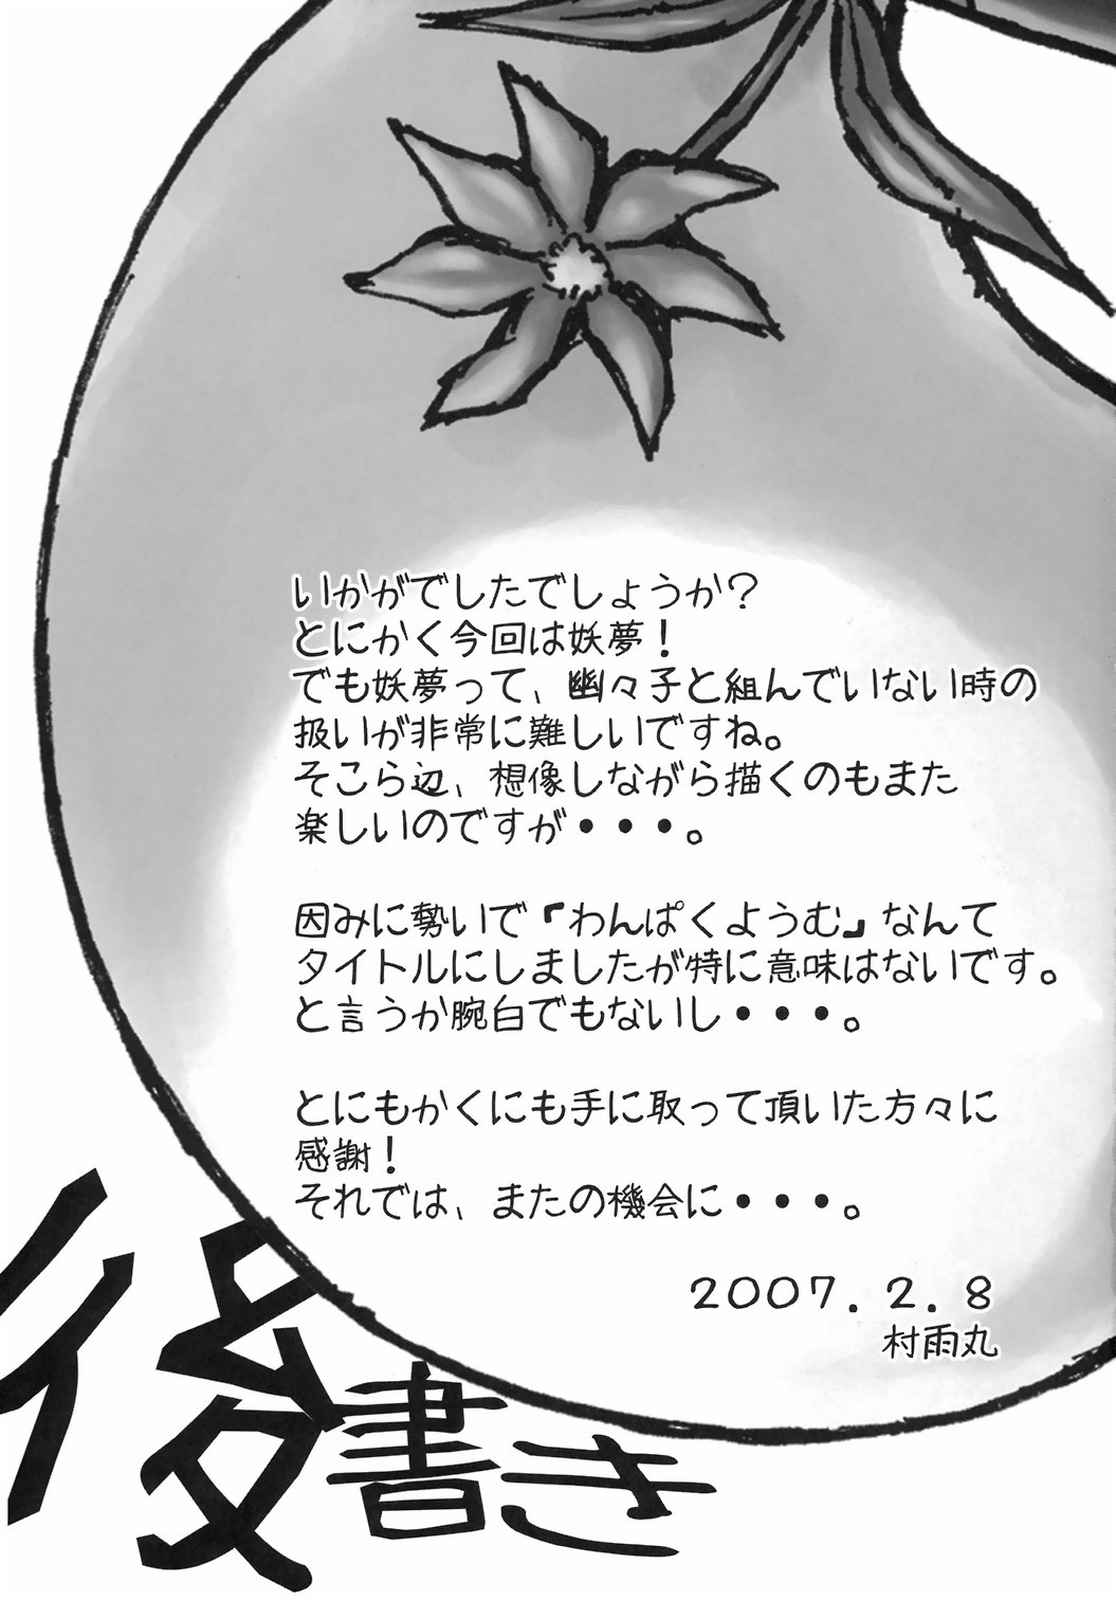 いかがでしたでしょうか?
とにかく今回は妖夢!
でも妖夢って、幽々子と組んでいない時の
扱いが非常に難しいですね。
そこら辺、想像しながら描くのもまた
楽しいのですが・・・。
因みに勢いで『わんぱくようむ』なんて
タイトルにしましたが特に意味はないです。
と言うか腕白でもないし・・・。
とにもかくにも手に取って頂いた方々に
感謝!
それでは、またの機会に・・・。
2007.2.8
村雨丸
後書き